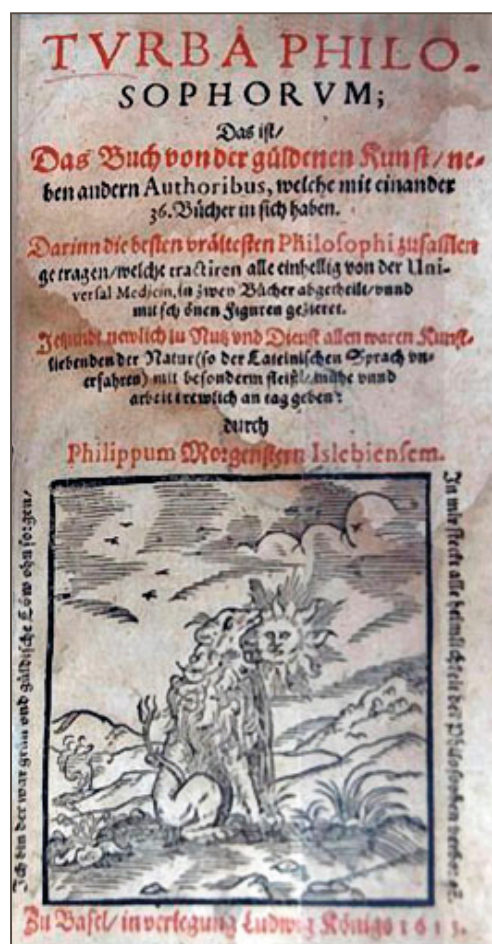 TVRBA PHILO-
SOPHORVM;
Das ist/
Das Buch von der güldenen Kunst/ ne-
ben andern Authoribus, welche mit einander
36. Bücher in sich haben.
Darinn die besten vrältesten Philosophi zusamen
getragen/welche tractiren alle einhellig von der Uni-
versal Medicin, in zwey Bücher abgetheilt/vnnd
mit schönen Figuren gezieret.
Jetzundt newlich zu Nutz vnd Dienst allen waren Kunst-
liebenden der Natur (so der Lateinischen Sprach vn-
erfahren) mit besonderm fleiß/ mühe vnnd
arbeit trewlich an tag geben:
durch
Philippum Morgenstern Islebiensem.
Ich bin der war grün vnd güldische Löw ohn sorgen/
In mir steckt alle heimlichkeit der Philosophen verborgẽ.
Zu Basel/ in verlegung Ludwig Königs 1613.